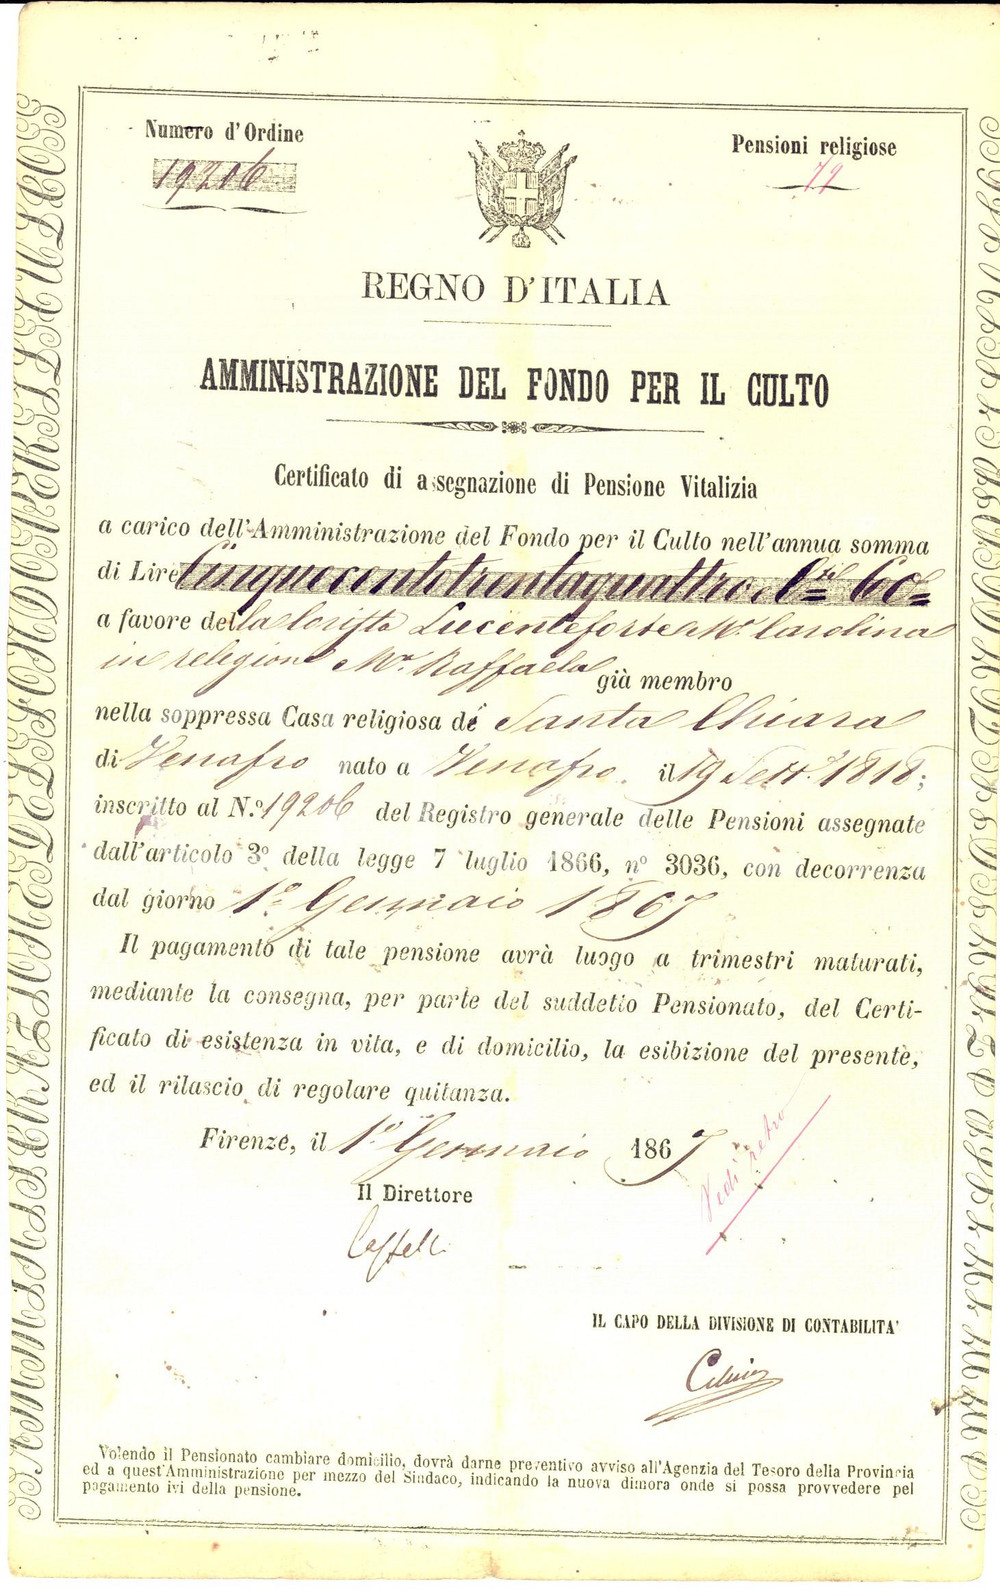 Numero d'Ordine
19206
Pensioni religiose
72
REGNO D'ITALIA
AMMINISTRAZIONE DEL FONDO PER IL CULTO
Certificato di assegnazione di Pensione Vitalizia
a carico dell'Amministrazione del Fondo per il Culto nell'annua somma
di Lire Cinquecentotrentaquattro, C.mi 60
a favore della Corista Lucenteforte Ma. Carolina
in religione Ma. Raffaela già membro
nella soppressa Casa religiosa di Santa Chiara
di Venafro nato a Venafro il 19 Sett. 1818;
inscritto al N.º 19206 del Registro generale delle Pensioni assegnate
dall'articolo 3º della legge 7 luglio 1866, nº 3036, con decorrenza
dal giorno 1º Gennaio 1867
Il pagamento di tale pensione avrà luogo a trimestri maturati,
mediante la consegna, per parte del suddetto Pensionato, del Certi-
ficato di esistenza in vita, e di domicilio, la esibizione del presente,
ed il rilascio di regolare quitanza.
Firenze, il 1º Gennaio 1867
Vedi retro
Il Direttore
IL CAPO DELLA DIVISIONE DI CONTABILITA'
Volendo il Pensionato cambiare domicilio, dovrà darne preventivo avviso all'Agenzia del Tesoro della Provincia
ed a quest'Amministrazione per mezzo del Sindaco, indicando la nuova dimora onde si possa provvedere pel
pagamento ivi della pensione.